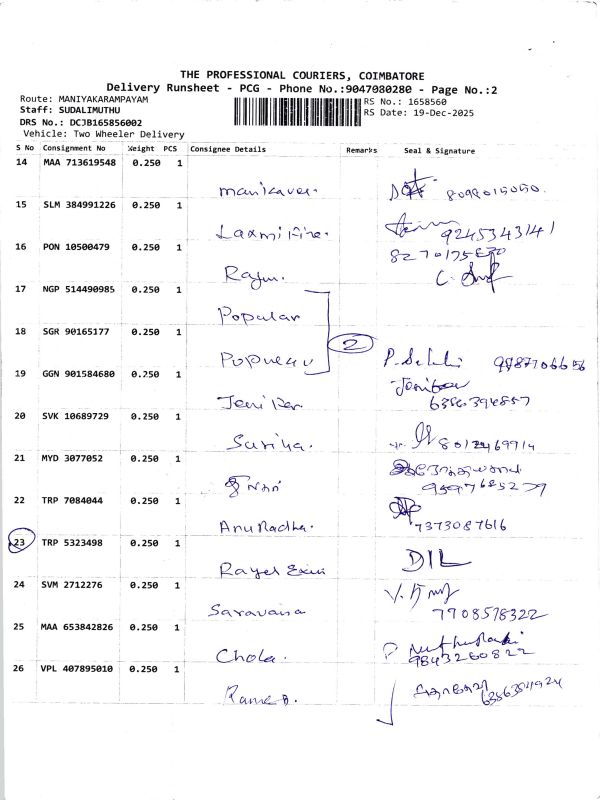 THE PROFESSIONAL COURIERS, COIMBATORE
Delivery Runsheet - PCG - Phone No.:9047080280 - Page No.:2
Route: MANIYAKARAMPAYAM
Staff: SUDALIMUTHU
DRS No.: DCJB165856002
Vehicle: Two Wheeler Delivery
RS No.: 1658560
RS Date: 19-Dec-2025
S No Consignment No Weight PCS Consignee Details Remarks Seal & Signature
14 MAA 713619548 0.250 1
Manikavel. 8099015050.
15 SLM 384991226 0.250 1
Laxmi Fire. 9245343141
16 PON 10500479 0.250 1
Raju.
17 NGP 514490985 0.250 1
Popular
2
18 SGR 90165177 0.250 1
Popular
19 GGN 901584680 0.250 1
Jenifer
20 SVK 10689729 0.250 1
21 MYD 3077052 0.250 1
22 TRP 7084044 0.250 1
AnuRadha. 7373087616
23 TRP 5323498 0.250 1
DIL
24 SVM 2712276 0.250 1
Saravana 7708578322
25 MAA 653842826 0.250 1
Chola. 9843260822
26 VPL 407895010 0.250 1